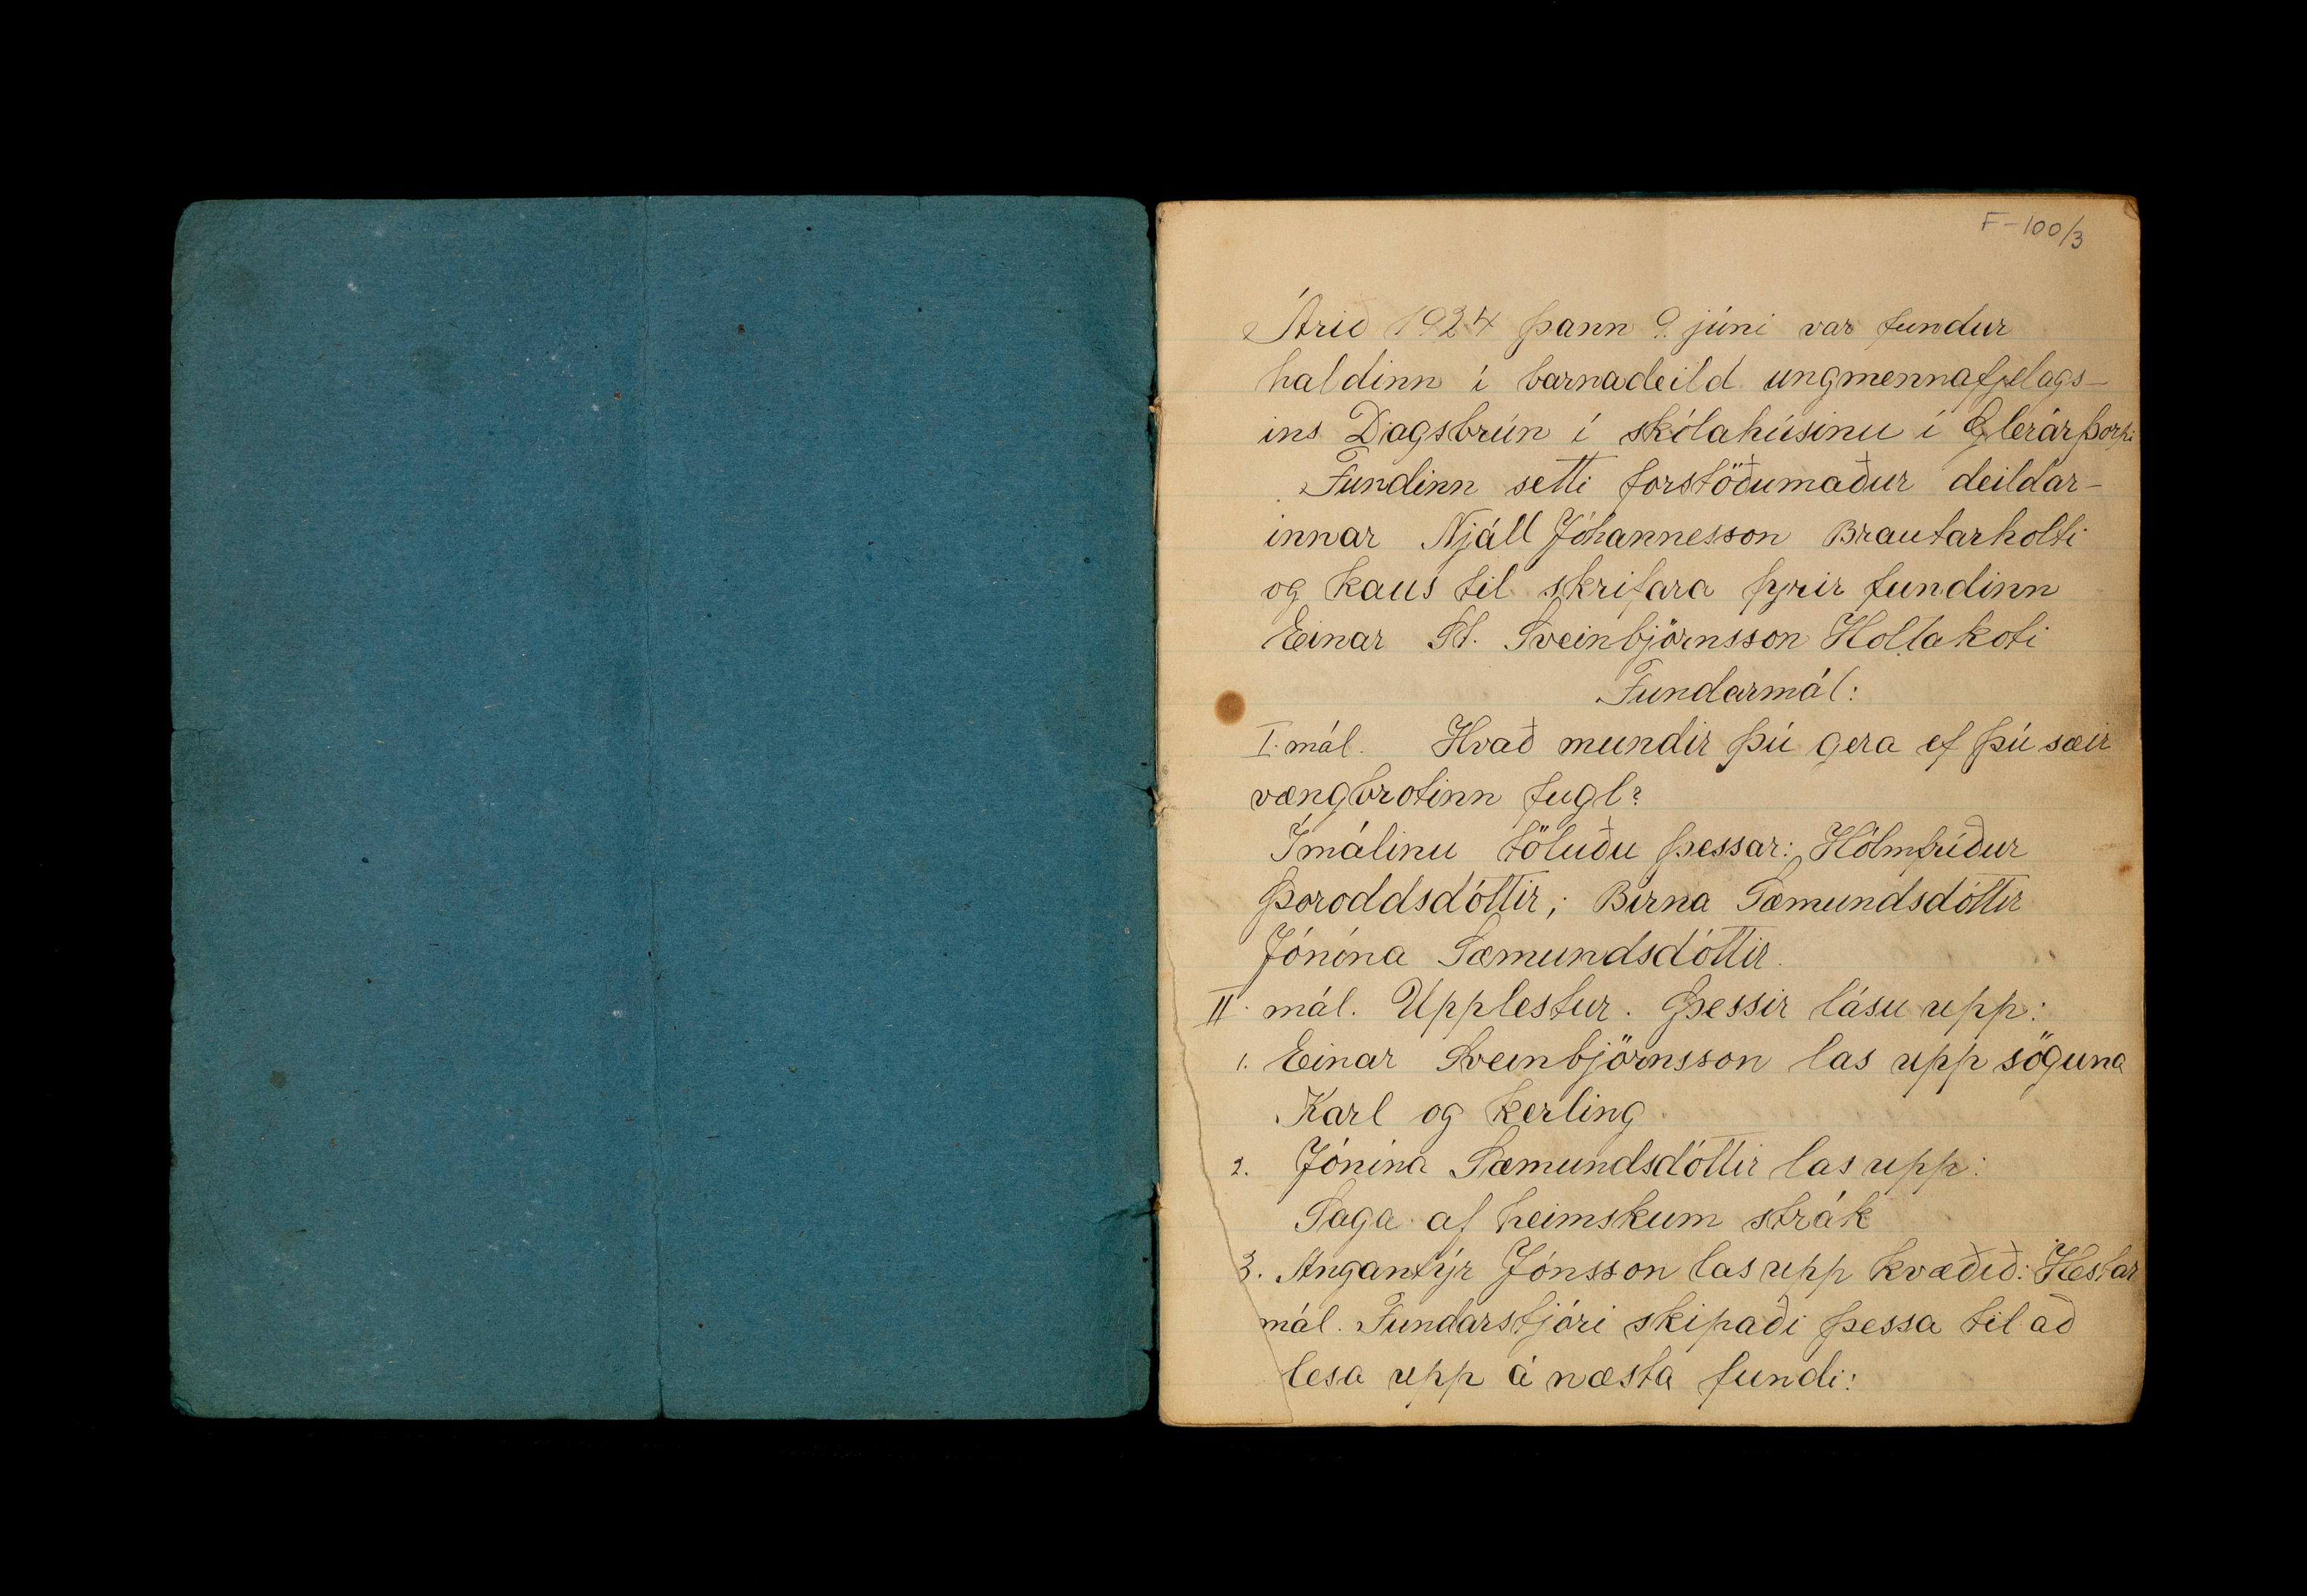 F-100/3
Árið 1924 þann 9. júni var fundur
haldinn í barnadeild ungmennafjelags-
ins Dagsbrún í skólahúsinu í Glerárþorpi
Fundinn setti forstöðumaður deildar-
innar Njáll Jóhannesson Brautarholti
og kaus til skrifara fyrir fundinn
Einar St. Sveinbjörnsson Holtakoti
Fundarmál:
I. mál. Hvað mundir þú gera ef þú sæir
vængbrotinn fugl?
Í málinu töluðu þessar: Hólmfríður
Þoroddsdóttir; Birna Sæmundsdóttir
Jónína Sæmundsdóttir.
II. mál. Upplestur. Þessir lásu upp:
1. Einar Sveinbjörnsson las upp söguna
Karl og kerling.
2. Jónína Sæmundsdóttir las upp:
Saga af heimskum strák
3. Angantýr Jónsson las upp kvæðið: Hestar
mál. Fundarstjóri skipaði þessa til að
lesa upp á næsta fundi: